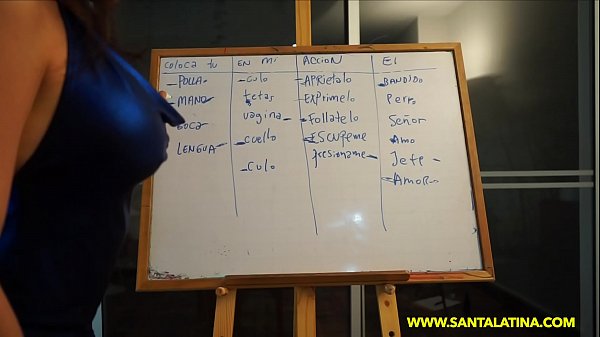 COLOCA TU EN MI ACCION EL
POLLA CULO APRIETALO BANDIDO
MANO tetas EXPRIMELO Perro
BOCA vagina FOLLATELO SEÑOR
LENGUA CUELLO ESCUPEME AMO
CULO presioname Jefe
AMOR
WWW.SANTALATINA.COM